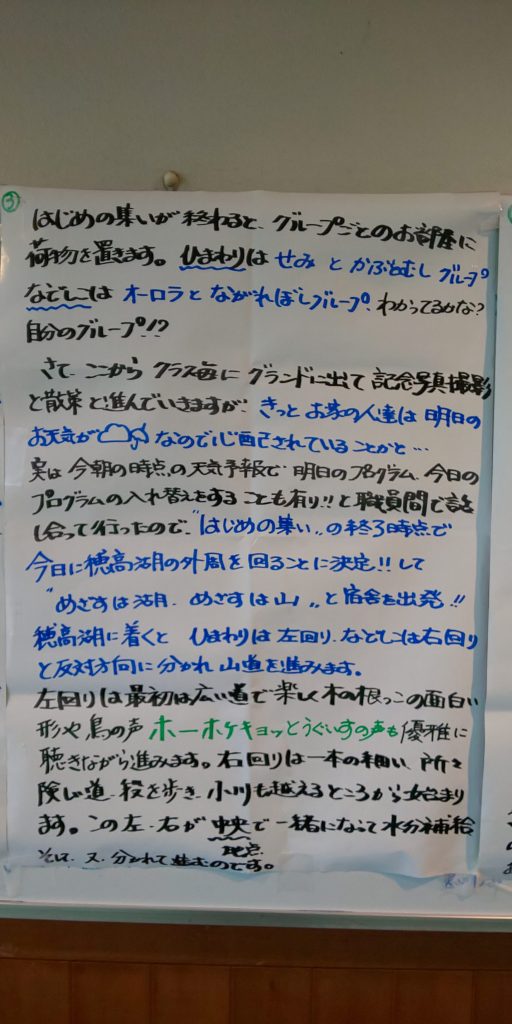 ③
はじめの集いが終わると、グループごとのお部屋に
荷物を置きます。ひまわりは せみ と かぶとむしグループ
なでしこは オーロラと ながれぼしグループ。わかってるかな?
自分のグループ!?
さて、ここから クラス毎に グランドに出て 記念写真撮影
と散策 と進んでいきますが、きっと お家の人達は 明日の
お天気が なので心配されていることかと…
実は 今朝の時点の天気予報で 明日のプログラム、今日の
プログラムの入れ替えをすることも有り!!と職員間で話
し合って行ったので、"はじめの集い"の終了時点で
今日に穂高湖の外周を回ることに決定!!して
"めざすは湖、めざすは山"と宿舎を出発!!
穂高湖に着くと ひまわりは左回り、なでしこは右回り
と反対方向に分かれ 山道を進みます。
左回りは最初は広い道で 楽しく木の根っこの面白い
形や鳥の声 ホーホケキョッとうぐいすの声も優雅に
聴きながら進みます。右回りは一本の細い、所々
険しい道、段を歩き、小川も越えるところから始まり
ます。この左・右が 中央で 一緒になって水分補給
地点
そして、又、分かれて進むのです。